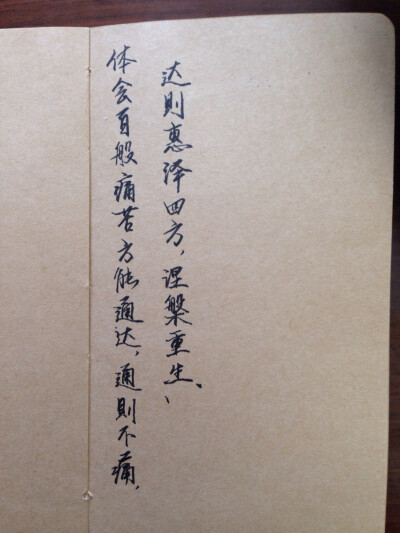 体会百般痛苦方能通达，通則不痛，
达則惠泽四方，涅槃重生、、